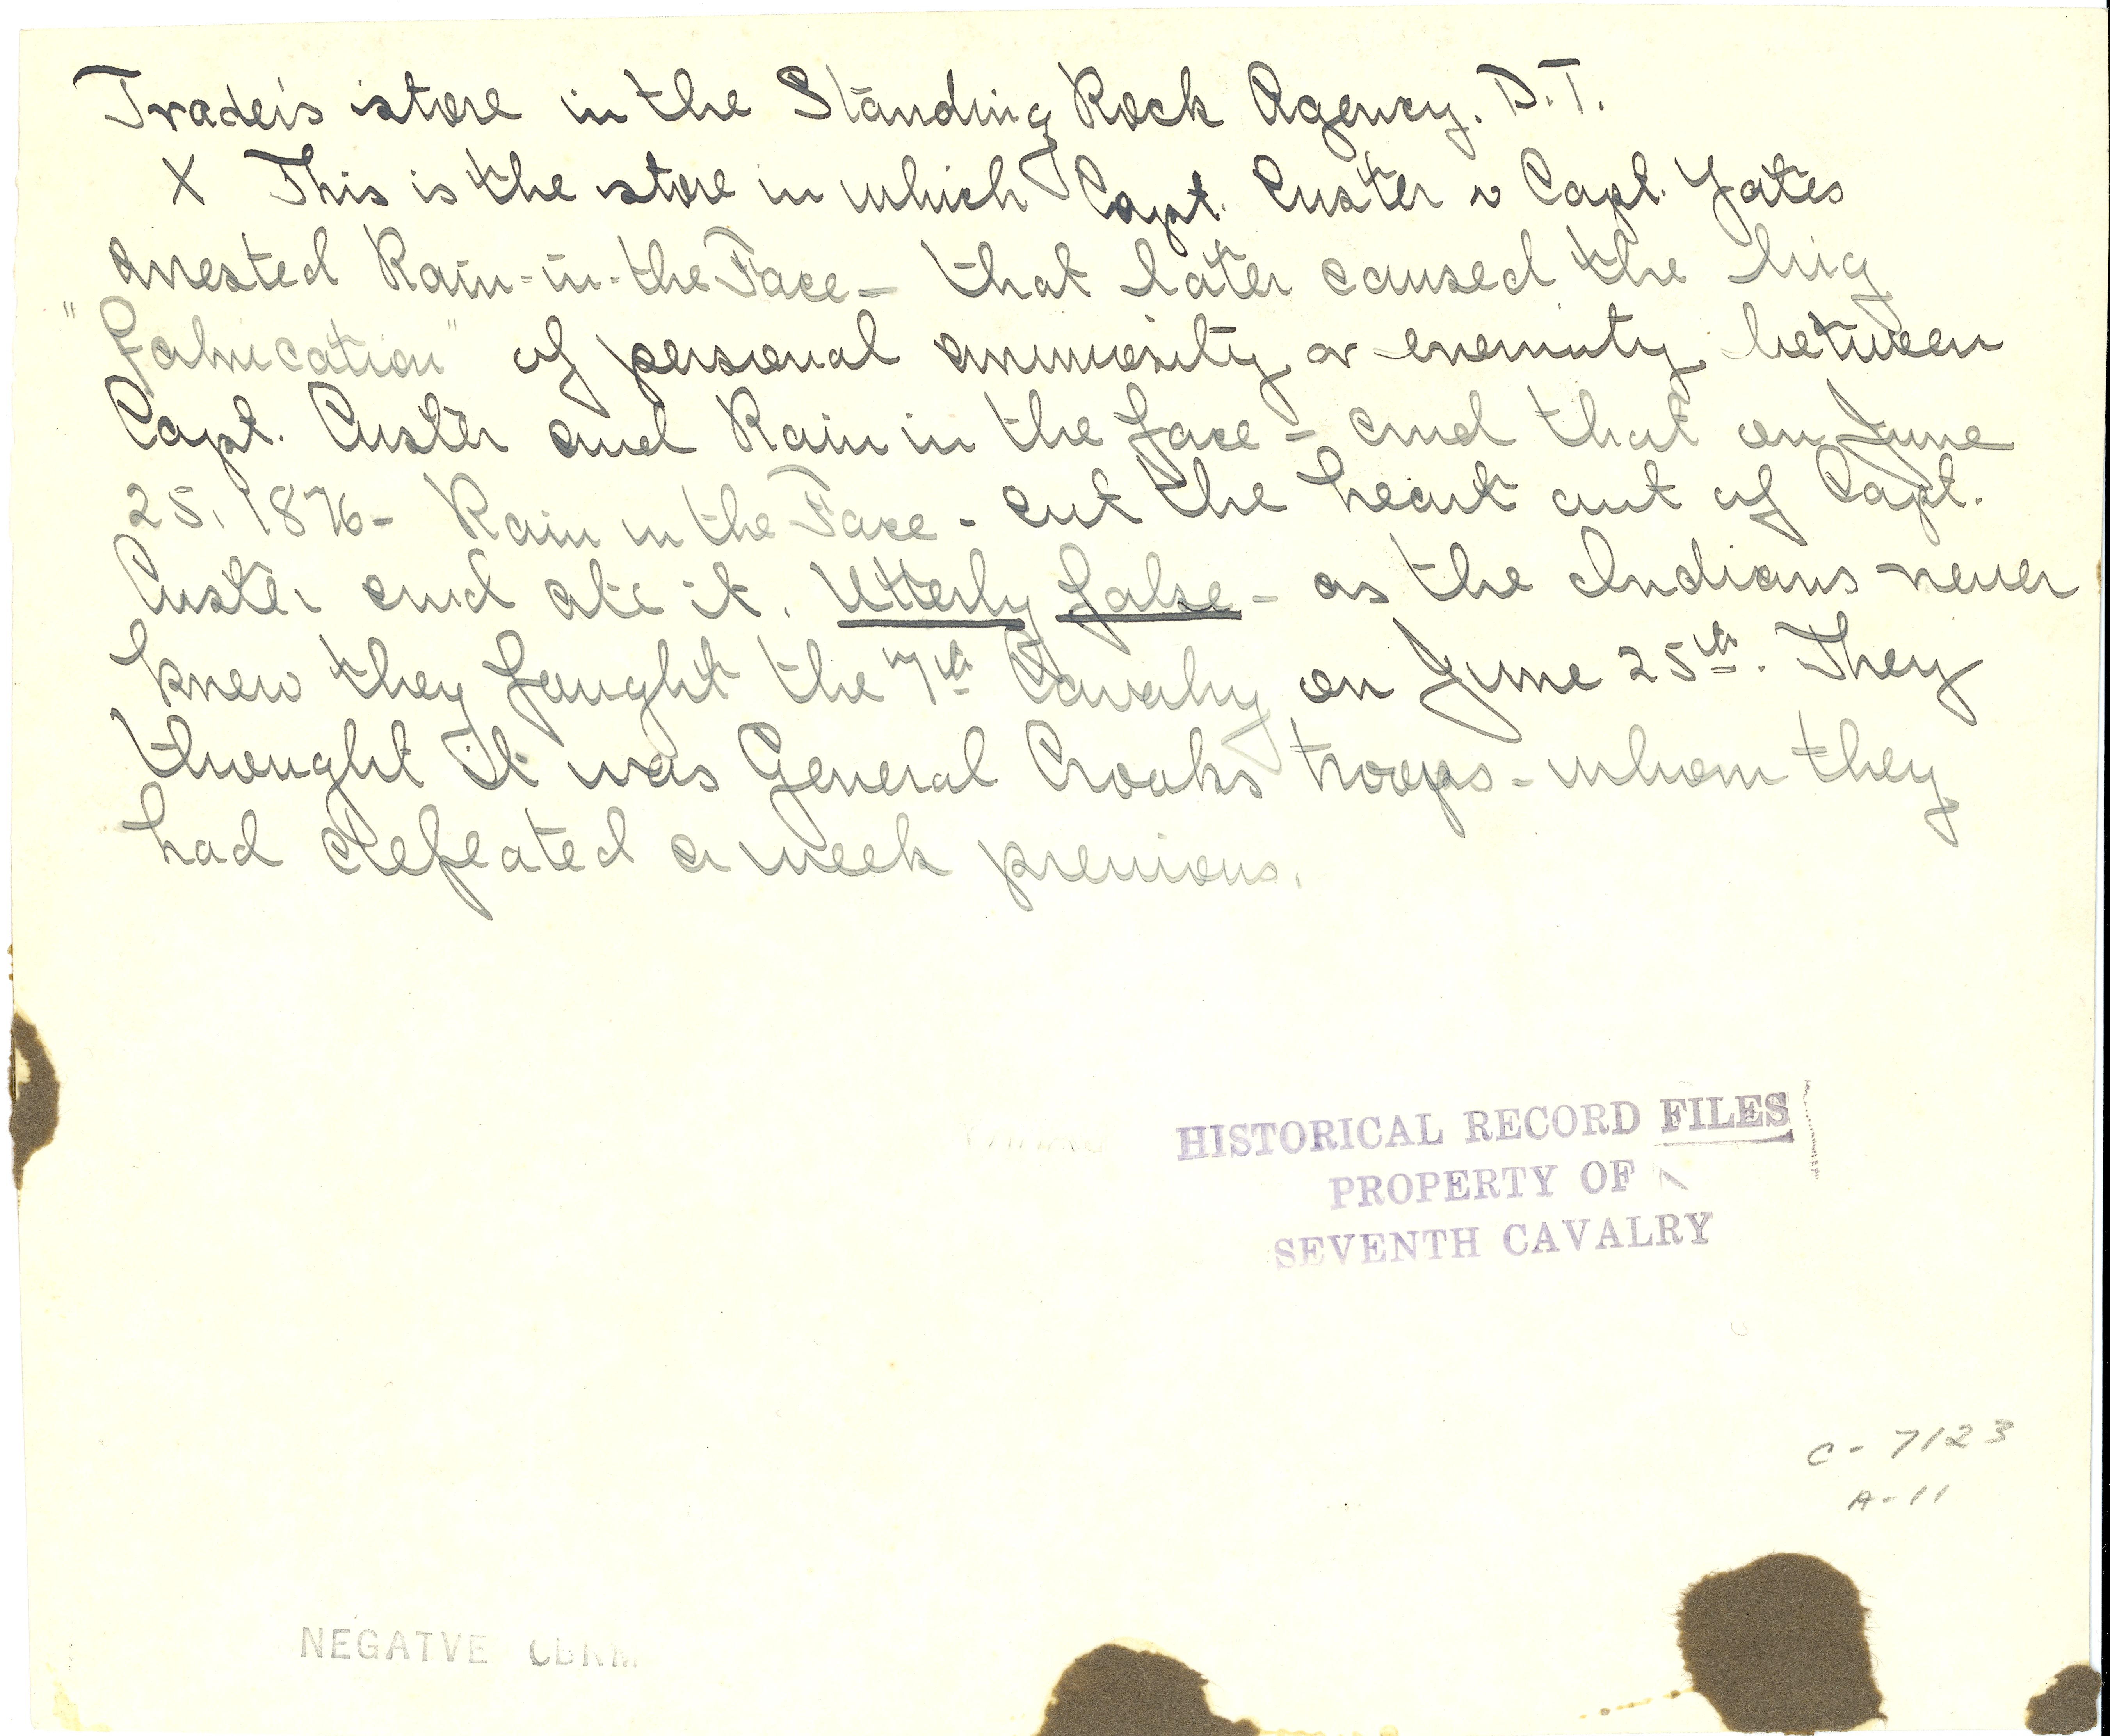 Trader's store in the Standing Rock Agency. D.T.
X This is the store in which Capt. Custer & Capt. Yates
arrested Rain-in-the Face - that later caused the big
"fabrication" of personal animosity or enemnity between
Capt. Custer and Rain in the face - and that on June
25, 1876 - Rain in the Face - cut the heart out of Capt.
Custer and ate it. Utterly false - as the Indians never
knew they fought the 7th Cavalry on June 25th. They
thought it was General Crooks troops - whom they
had defeated a week previous.
HISTORICAL RECORD FILES
PROPERTY OF
SEVENTH CAVALRY
C-7123
A-11
NEGATVE CBNM